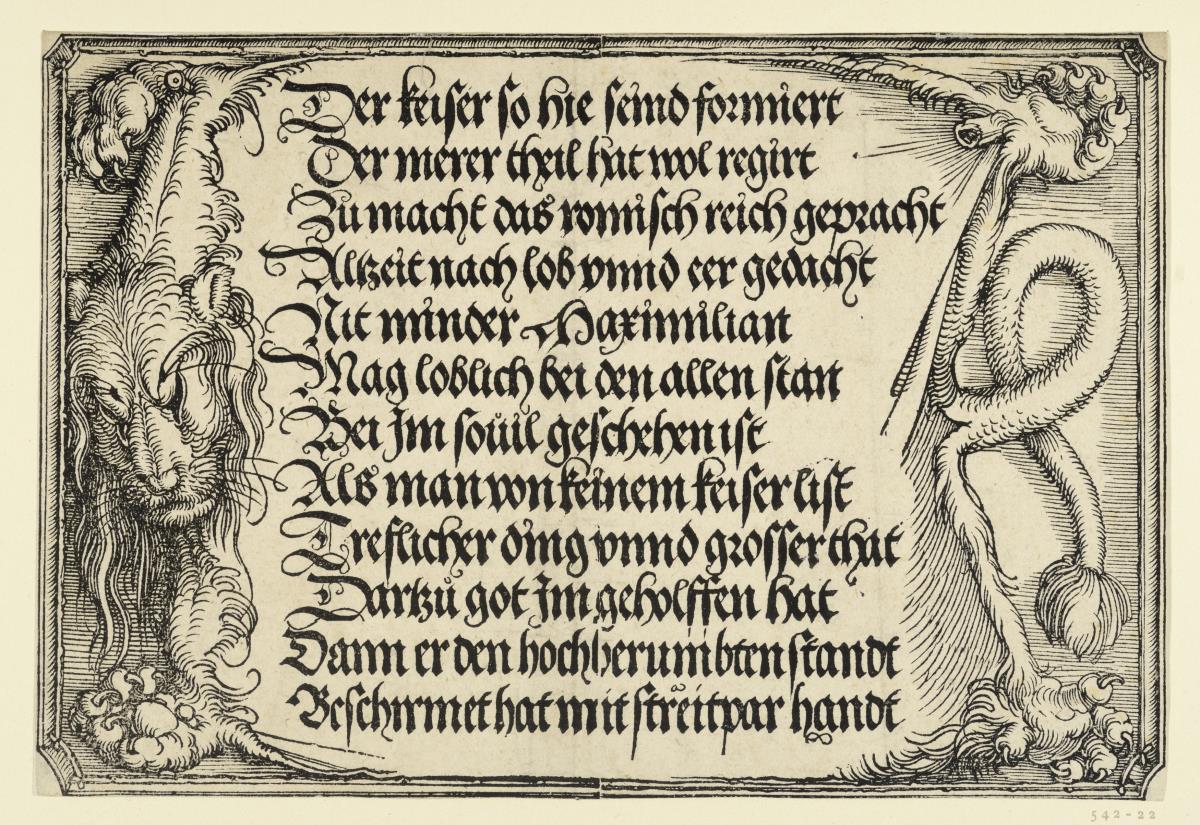 Der keiser so hie seind formiert
Der merer theil hat wol regirt
Zu macht das romisch reich gepracht
Altzeit nach lob vnnd eer gedacht
Nit minder Maximilian
Mag loblich bei den allen stan
Bei Im souil geschehen ist
Als man von keinem keiser list
Treflicher ding vnnd grosser that
Dartzů got Im geholffen hat
Dann er den hochberumbten standt
Beschirmet hat mit streitpar handt
542-22